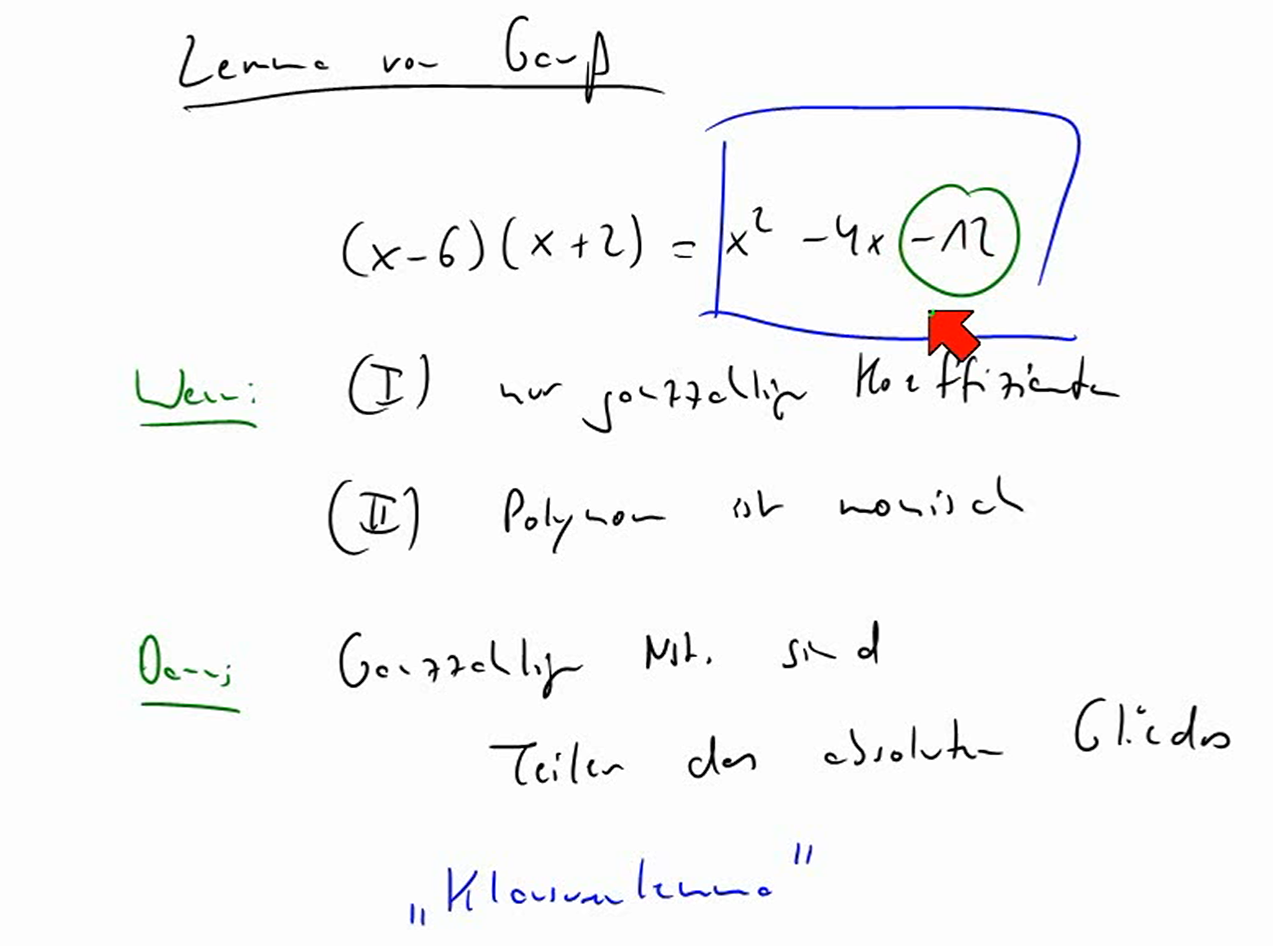 Lemma von Gauß
(x-6)(x+2) = x² -4x -12
Wenn: (I) nur ganzzahlige Koeffizienten
(II) Polynom ist monisch
Dann: Ganzzahlige Nst. sind
Teiler des absoluten Gliedes
„Klausurenlemma"